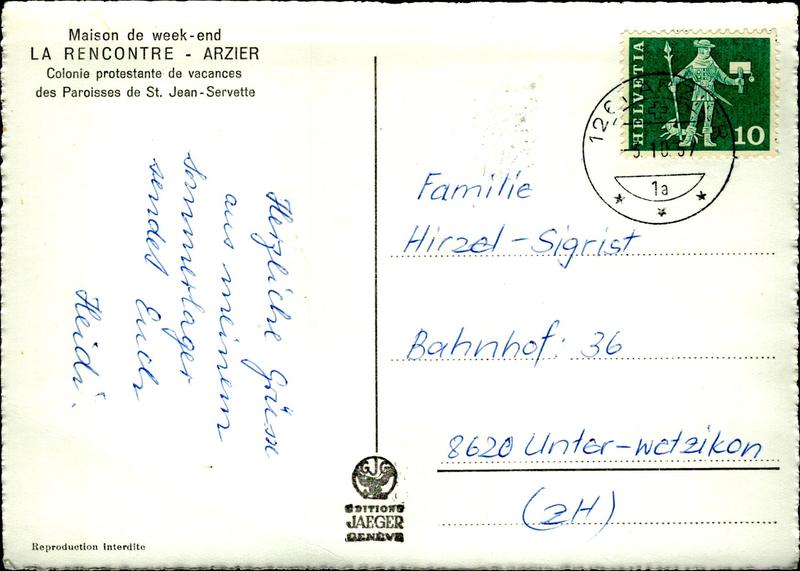 Maison de week-end
LA RENCONTRE - ARZIER
Colonie protestante de vacances
des Paroisses de St. Jean-Servette
HELVETIA
10
1a
Familie
Hirzel-Sigrist
Bahnhof: 36
8620 Unter-wetzikon
(ZH)
Herzliche Grüsse
aus meinem
Sommerlager
sendet Euch
Heidi.
GJG
EDITIONS
JAEGER
GENÈVE
Reproduction Interdite